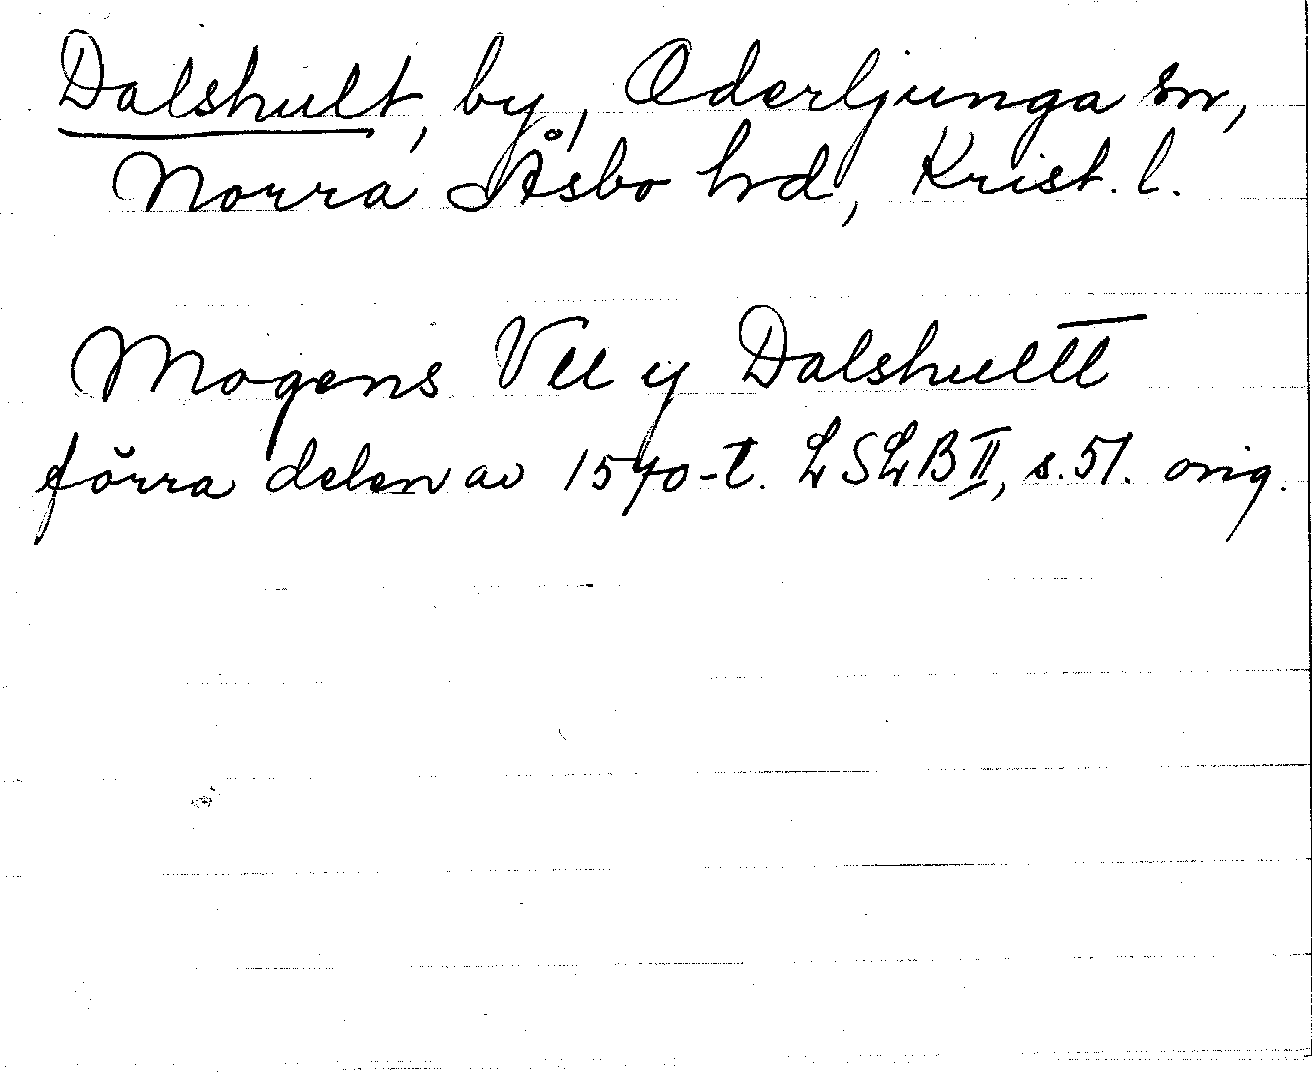 Dalshult, by, Oderljunga sn,
Norra Åsbo hrd, Krist. l.
Mogens Vll y Dalshultt
förra delen av 1540-t. LSLB II, s. 51. orig.